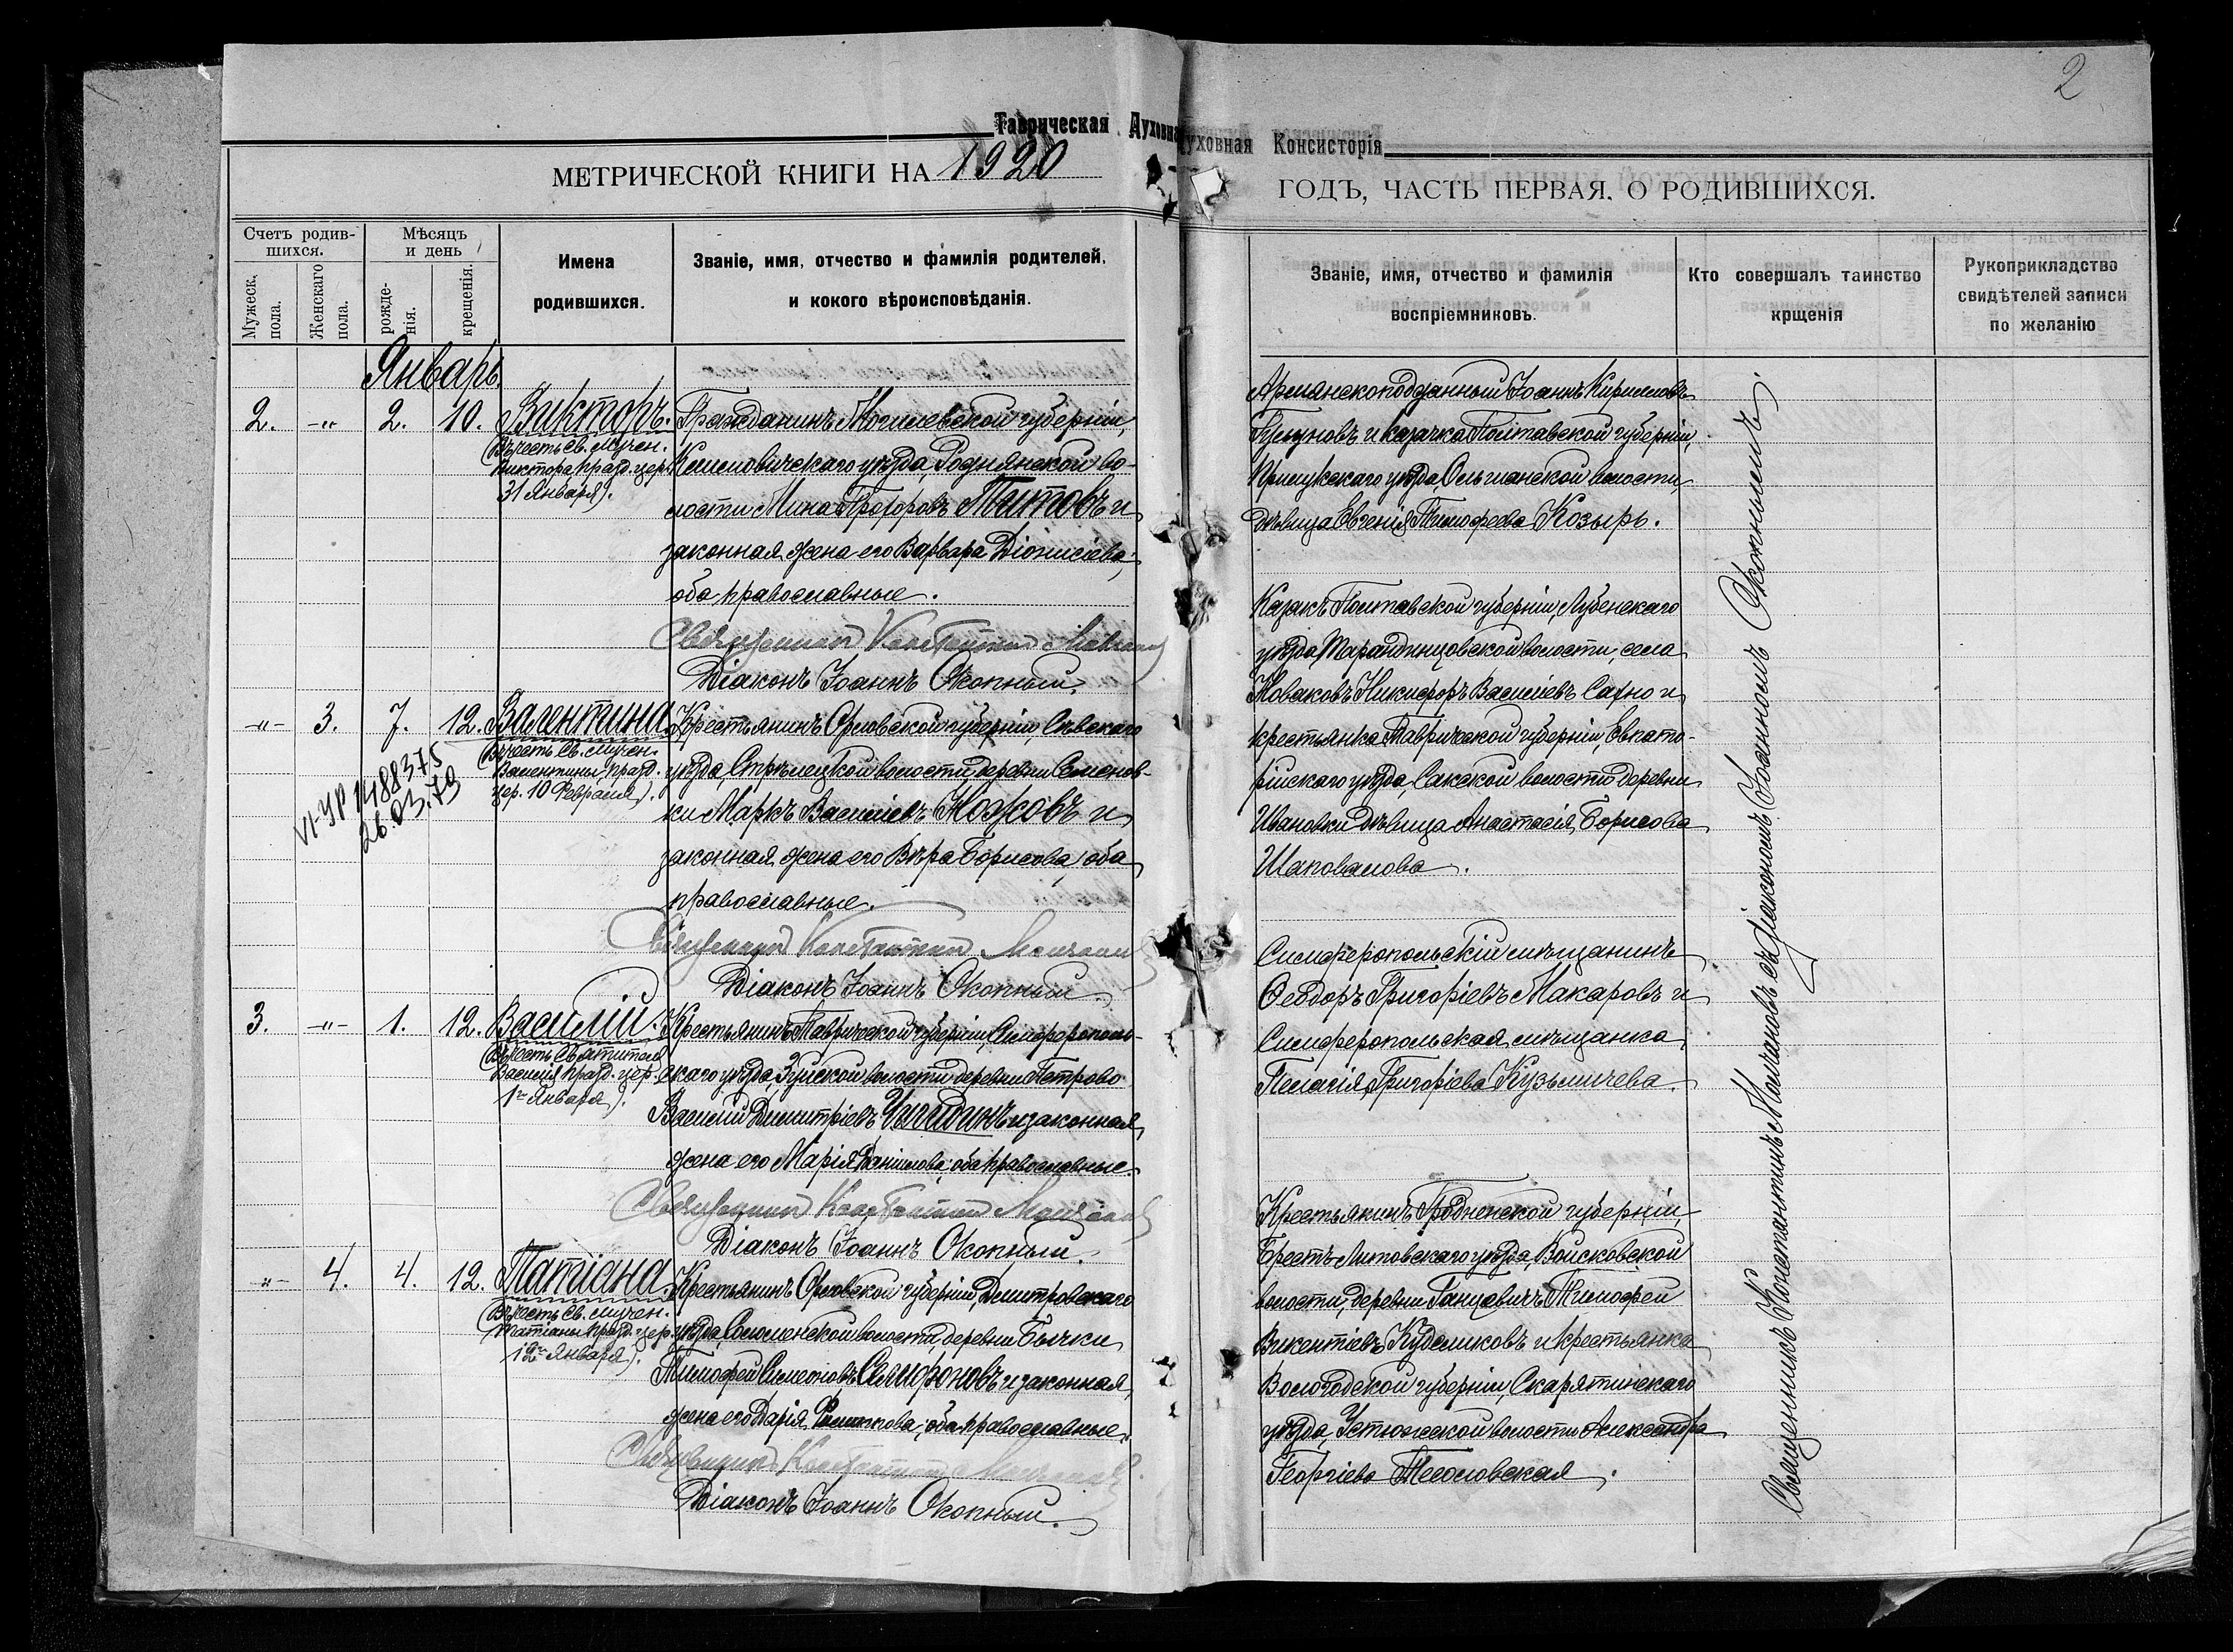 2
Таврическая Духовная
Духовная Консисторія
МЕТРИЧЕСКОЙ КНИГИ НА 1920
ГОДЪ, ЧАСТЬ ПЕРВАЯ, О РОДИВШИХСЯ.
Счетъ родив-
шихся.
Мужеск.
пола.
Женскаго
пола.
Мѣсяцъ
и день
рожде-
нія.
крещенія.
Имена
родившихся.
Званіе, имя, отчество и фамилія родителей,
и кокого вѣроисповѣданія.
Званіе, имя, отчество и фамилія
воспріемниковъ.
Кто совершалъ таинство
крщенія
Рукоприкладство
свидѣтелей записи
по желанію
Январь.
2. -"- 2. 10. Викторъ.
(Въ честь Св. мучен.
Виктора, празд. цер.
31 Января).
Гражданинъ Могилевской губерніи,
Климовичскаго уѣзда, Роднянской во-
лости Мина Прохоровъ Титовъ и
законная жена его Варвара Діонисіева;
оба православные.
Священникъ Константинъ
Діаконъ Іоаннъ Окопный.
-"- 3. 7. 12. Валентина.
(Въ честь Св. мучен.
Валентины, празд.
цер. 10 Февраля).
VI-УР №488375
26.03.79
Крестьянинъ Орловской губерніи, Сѣвскаго
уѣзда, Стрѣлецкой волости, деревни Семенов-
ки Маркъ Васильевъ Ножовъ и
законная жена его Вѣра Борисова, оба
православные.
Священникъ Константинъ
Діаконъ Іоаннъ Окопный.
3. -"- 1. 12. Василій.
(Въ честь Святителя
Василія, празд. цер.
1го Января).
Крестьянинъ Таврической губерніи, Симферополь-
скаго уѣзда Зуйской волости деревни Петрово
Василій Димитріевъ и законная
жена его Марія Даніилова; оба православные.
Священникъ Константинъ
Діаконъ Іоаннъ Окопный.
-"- 4. 4. 12. Татіана.
(Въ честь Св. мучен.
Татіаны, празд. цер.
12го Января).
Крестьянинъ Орловской губерніи, Дмитровскаго
уѣзда, Соломенской волости, деревни Бычки
Тимофей Симеоновъ Селифоновъ и законная
жена его Дарія Филиппова; оба православные.
Священникъ Константинъ
Діаконъ Іоаннъ Окопный.
Армянскоподданный Іоаннъ Кирилловъ
и казачка Полтавской губерніи,
Прилукскаго уѣзда, Ольшанской волости,
дѣвица Евгенія Тимофеева Козырь.
Казакъ Полтавской губерніи, Лубенскаго
уѣзда Тарандинцовской волости, села
Новаковъ Никифоръ Василіевъ Сахно и
крестьянка Таврической губерніи, Евпато-
рійскаго уѣзда, Сакской волости деревни
Ивановки дѣвица Анастасія Борисова
Шаповалова.
Симферопольскій мѣщанинъ
Ѳеодоръ Григоріевъ Макаровъ и
Симферопольская мѣщанка
Пелагія Григоріева Кузьмичева.
Крестьянинъ Гродненской губерніи,
Брестъ-Литовскаго уѣзда, Войсковской
волости, деревни Ганцевичъ Тимофей
Викентіевъ Куделиковъ и крестьянка
Вологодской губерніи,
уѣзда, Устюжской волости Александра
Георгіева Теголовская.
Священникъ Константинъ съ діакономъ Іоанномъ Окопнымъ.